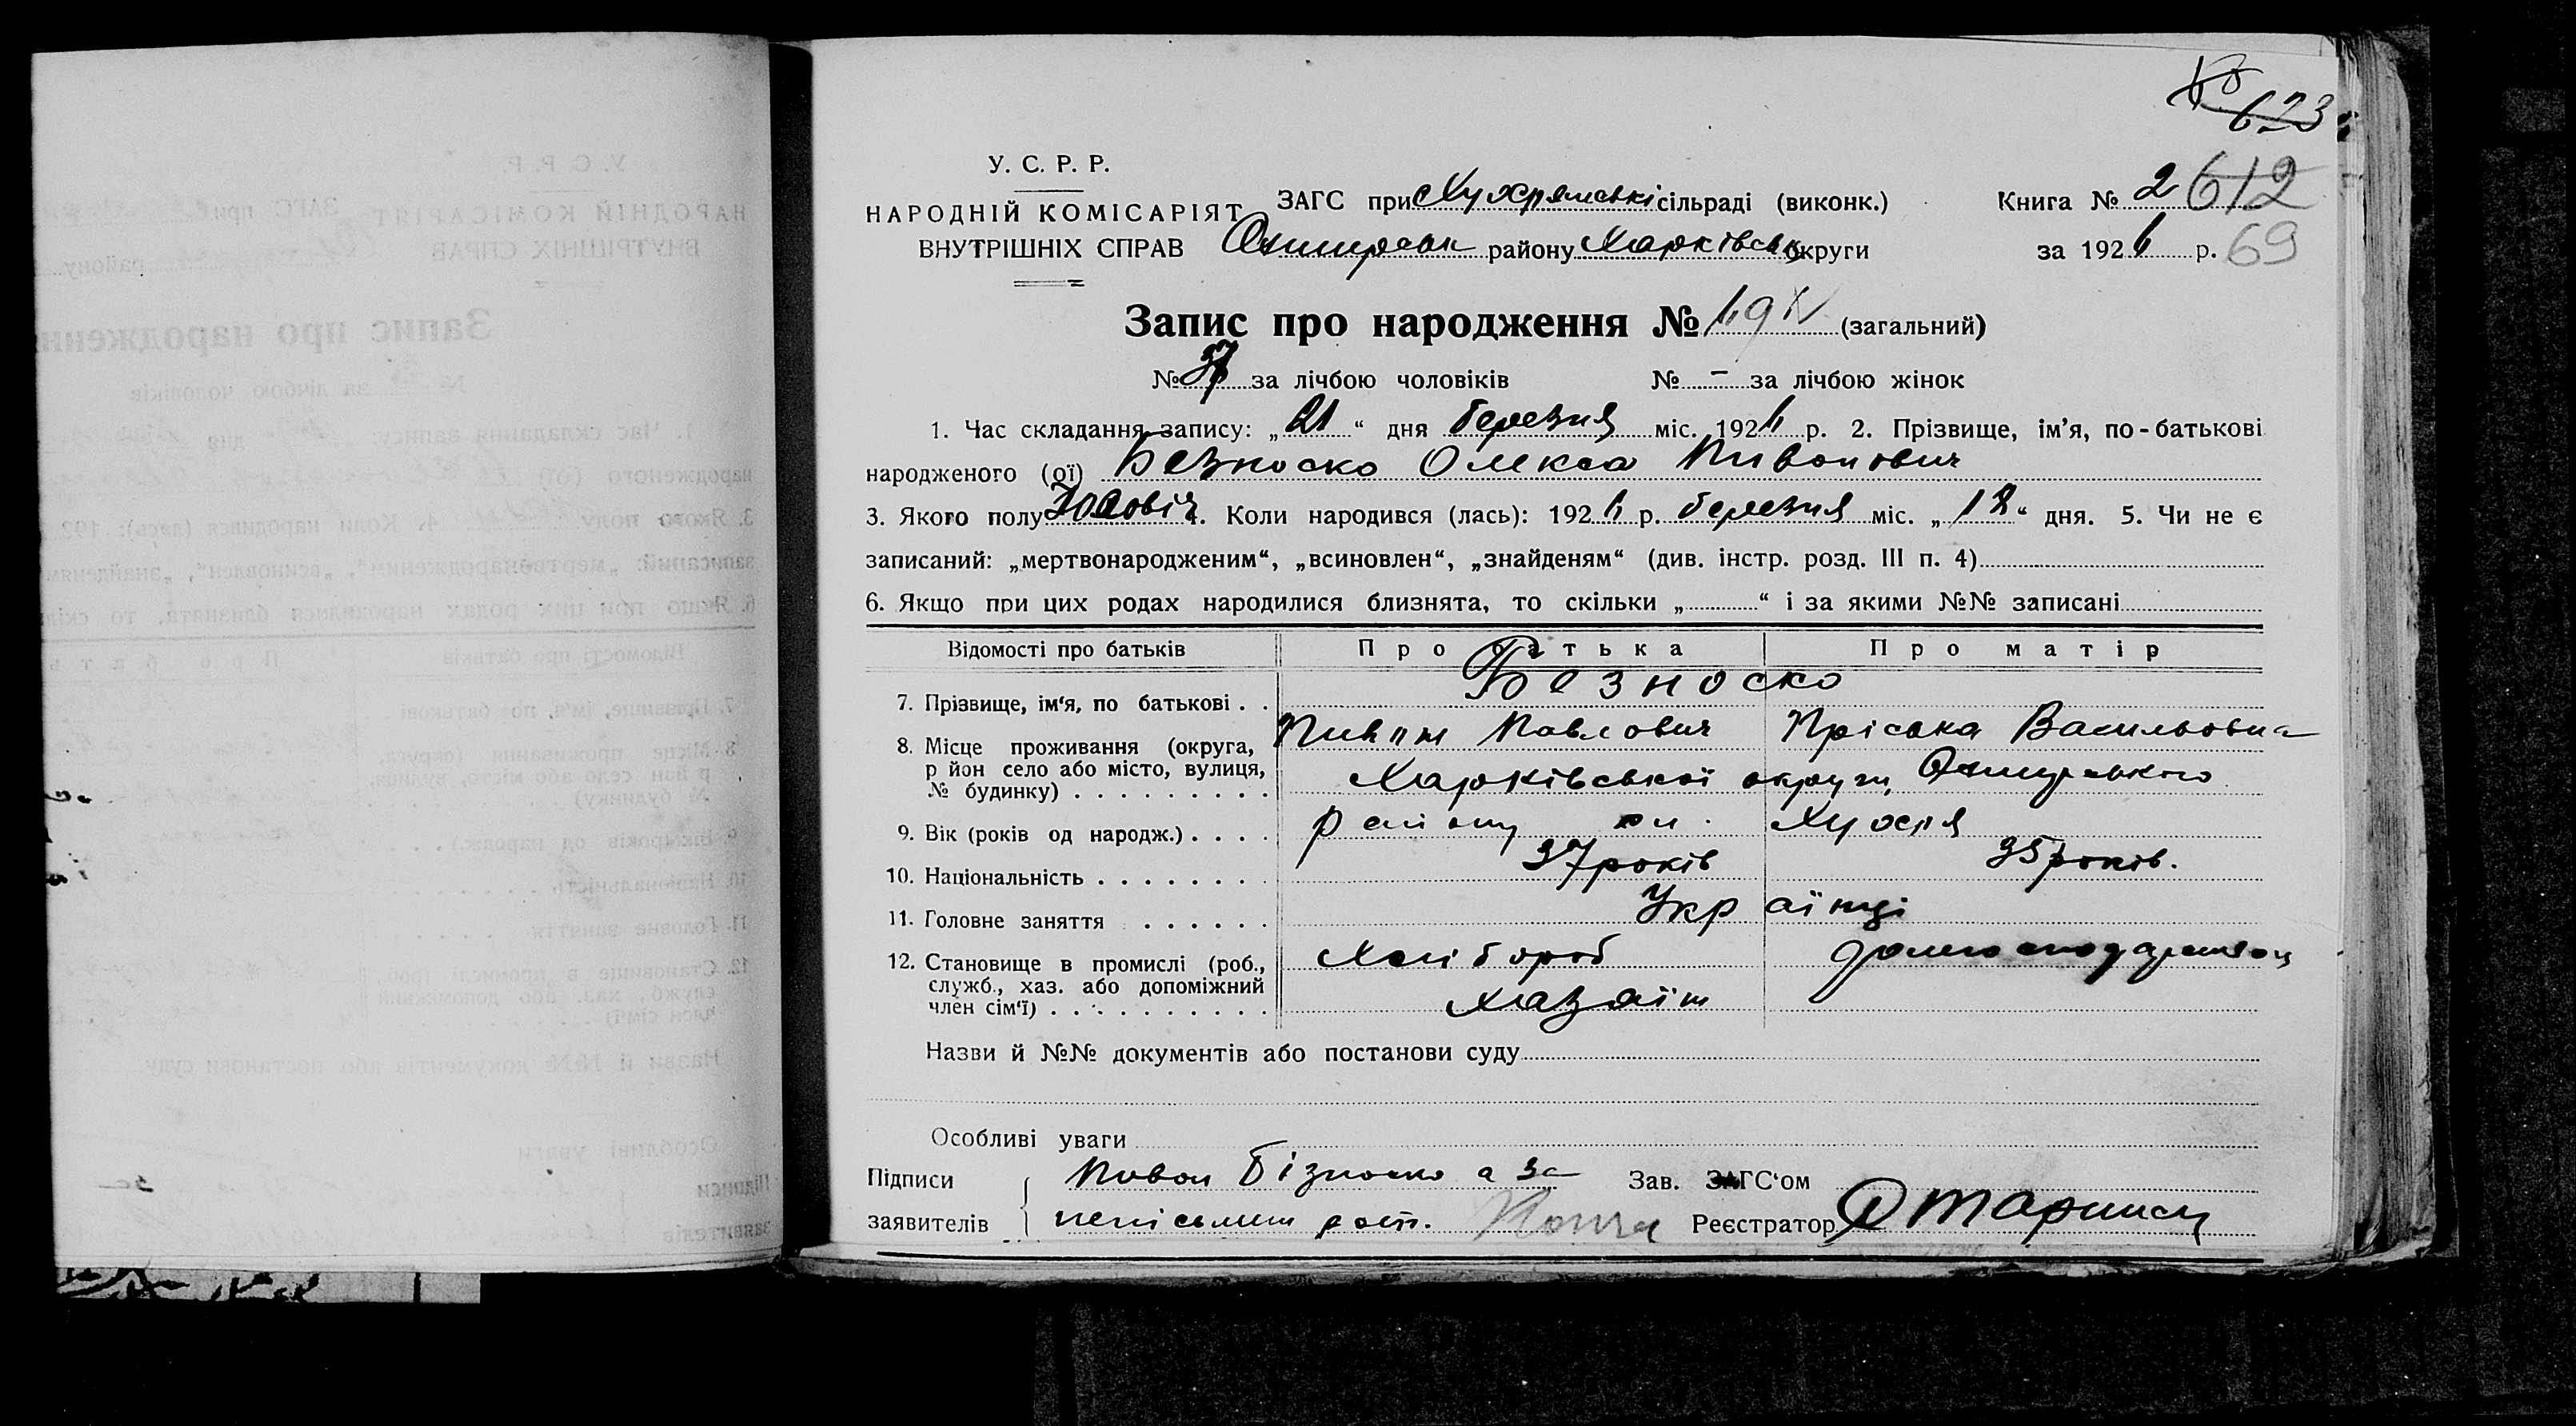 623
У. С. Р. Р.
НАРОДНІЙ КОМІСАРІЯТ
ВНУТРІШНІХ СПРАВ
ЗАГС при сільраді (виконк.)
району Харківськ округи
Книга № 2 612
за 1926 р. 69
Запис про народження № (загальний)
№ 37 за лічбою чоловіків № - за лічбою жінок
1. Час складання запису: „21“ дня березня міс. 1926 р. 2. Прізвище, ім’я, по-батькові
народженого (ої) Безноско Олекса Пивонович
3. Якого полу 4. Коли народився (лась): 1926 р. березня міс. „18“ дня. 5. Чи не є
записаний: „мертвонародженим“, „всиновлен“, „знайденям“ (див. інстр. розд. III п. 4)
6. Якщо при цих родах народилися близнята, то скільки „ “ і за якими №№ записані
Відомості про батьків Про батька Про матір
Безноско
7. Прізвище, ім‘я, по батькові . .
Пивон Павлович Пріська Васильовна
8. Місце проживання (округа,
р йон село або місто, вулиця,
№ будинку) . . . . . . . . .
Харківської округи,
району Хухря
9. Вік (років од народж.) . . . .
37 років 35 років.
10. Національність . . . . . . . .
Українці
11. Головне заняття . . . . . .
Хлібороб
12. Становище в промислі (роб.,
служб., хаз. або допоміжний
член сім‘ї) . . . . . . . . . .
хазяїн
Назви й №№ документів або постанови суду
Особливі уваги
Підписи
заявителів
Пивон Безноско а за
Зав. ЗАГС‘ом
Реєстратор